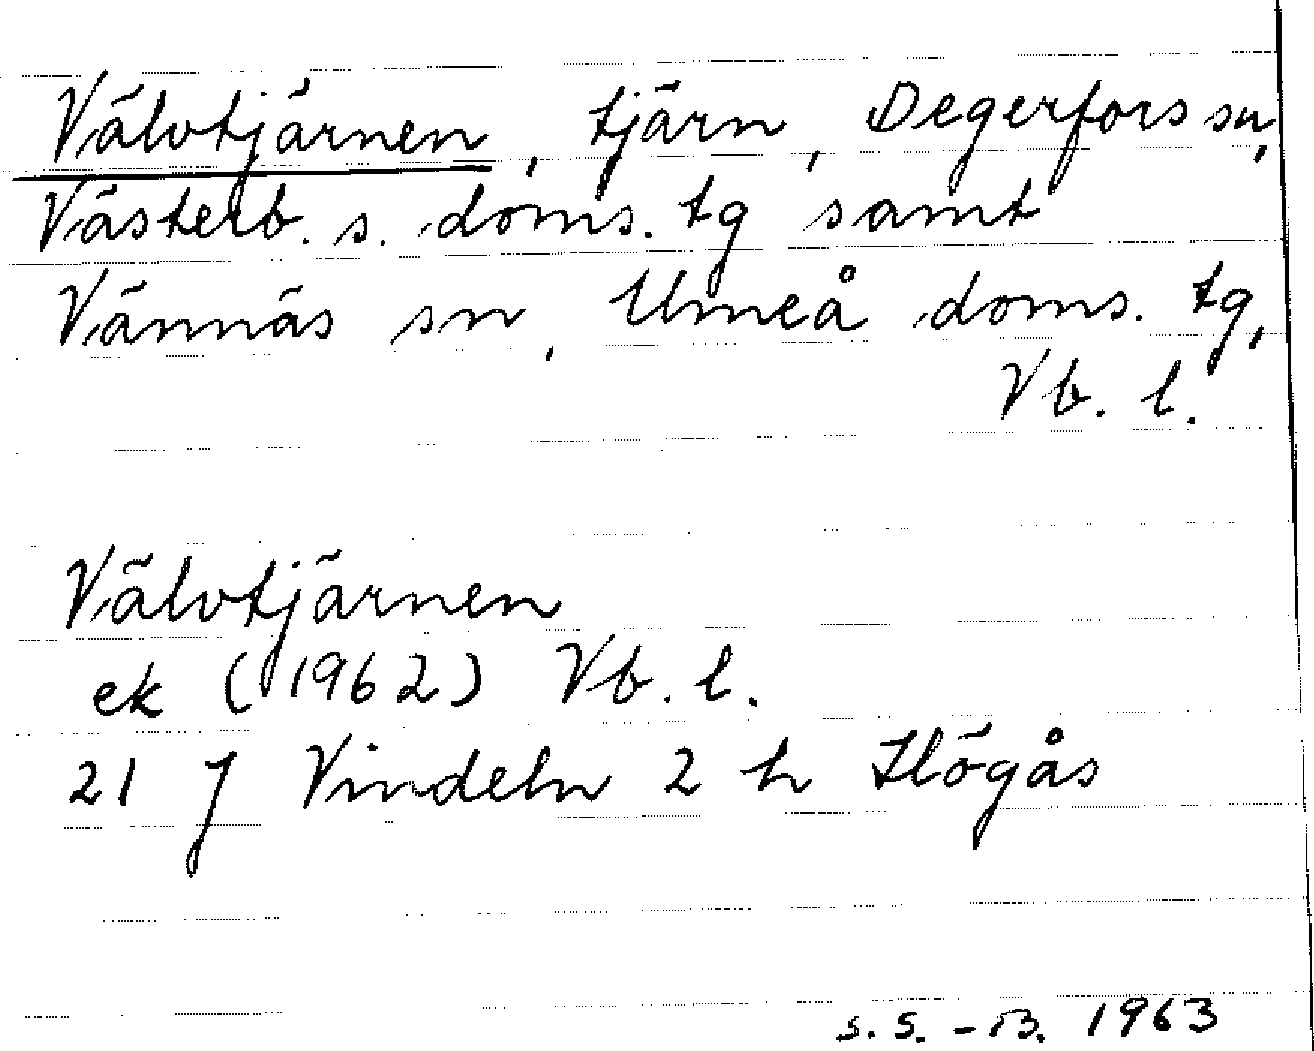 Välvtjärnen, tjärn, Degerfors sn,
Västerb. s. doms. tg samt
Vännäs sn, Umeå doms. tg,
Vb. l.
Välvtjärnen
ek (1962) Vb. l.
21 J Vindeln 2 h Högås
S. S. - B. 1963